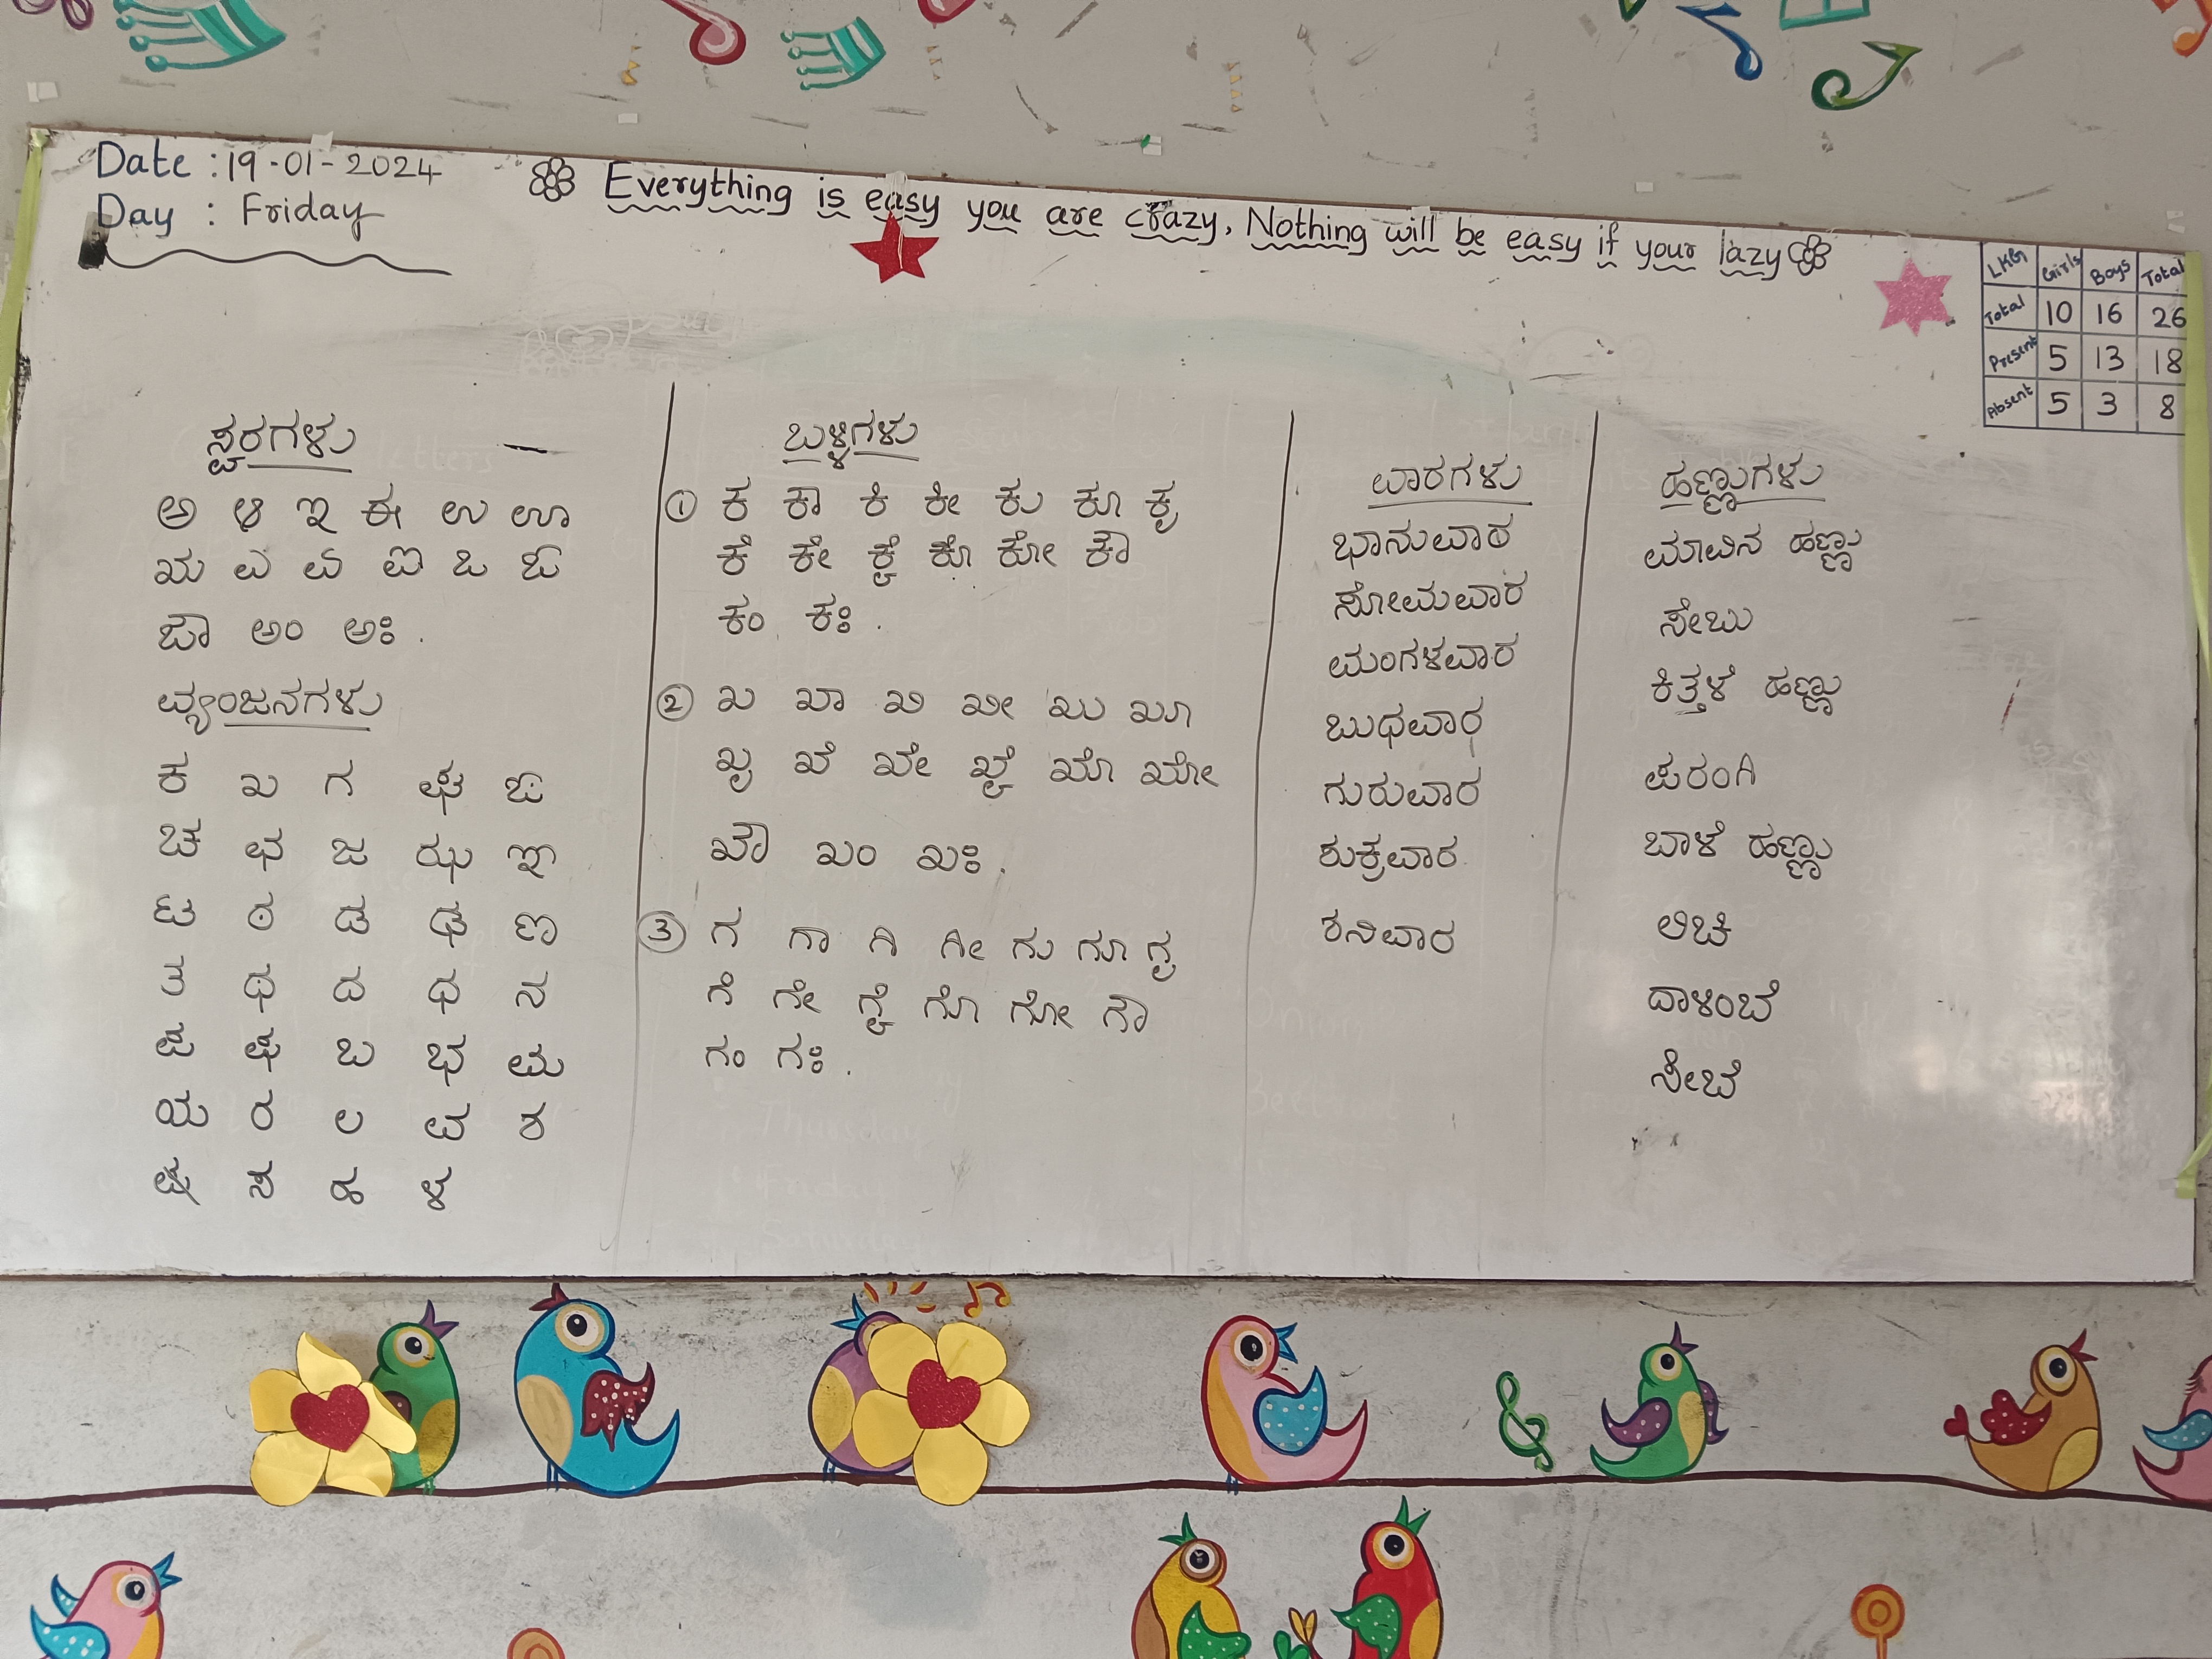 Date : 19-01-2024
Day : Friday
Everything is easy you are crazy, Nothing will be easy if your lazy
LKG Girls Boys Total
Total 10 16 26
Present 5 13 18
Absent 5 3 8
ಸ್ವರಗಳು
ಅ ಆ ಇ ಈ ಉ ಊ
ಋ ಎ ಏ ಐ ಒ ಓ
ಔ ಅಂ ಅಃ .
ವ್ಯಂಜನಗಳು
ಕ ಖ ಗ ಘ ಙ
ಚ ಛ ಜ ಝ ಞ
ಟ ಠ ಡ ಢ ಣ
ತ ಥ ದ ಧ ನ
ಪ ಫ ಬ ಭ ಮ
ಯ ರ ಲ ವ ಶ
ಷ ಸ ಹ ಳ
ಬಳ್ಳಿಗಳು
① ಕ ಕಾ ಕಿ ಕೀ ಕು ಕೂ ಕೃ
ಕೆ ಕೇ ಕೈ ಕೊ ಕೋ ಕೌ
ಕಂ ಕಃ .
② ಖ ಖಾ ಖಿ ಖೀ ಖು ಖೂ
ಖೃ ಖೆ ಖೇ ಖೈ ಖೊ ಖೋ
ಖೌ ಖಂ ಖಃ .
③ ಗ ಗಾ ಗಿ ಗೀ ಗು ಗೂ ಗೃ
ಗೆ ಗೇ ಗೈ ಗೊ ಗೋ ಗೌ
ಗಂ ಗಃ .
ವಾರಗಳು
ಭಾನುವಾರ
ಸೋಮವಾರ
ಮಂಗಳವಾರ
ಬುಧವಾರ
ಗುರುವಾರ
ಶುಕ್ರವಾರ
ಶನಿವಾರ
ಹಣ್ಣುಗಳು
ಮಾವಿನ ಹಣ್ಣು
ಸೇಬು
ಕಿತ್ತಳೆ ಹಣ್ಣು
ಪರಂಗಿ
ಬಾಳೆ ಹಣ್ಣು
ಲಿಚಿ
ದಾಳಂಬೆ
ಸೀಬೆ